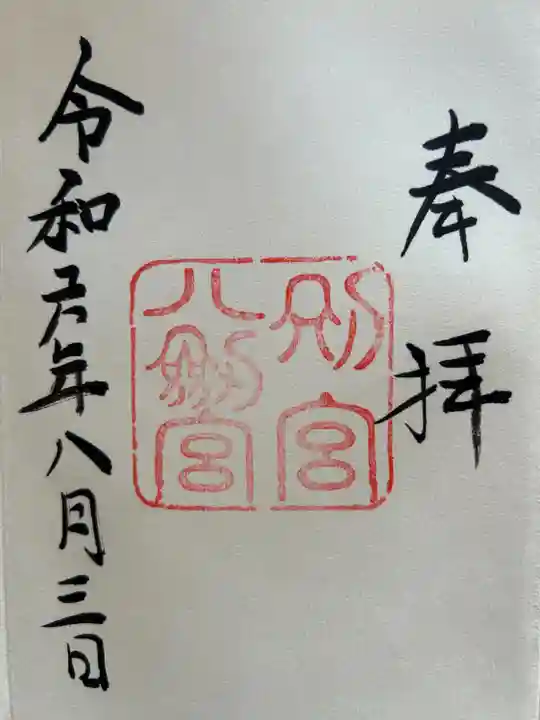 奉拝
別宮
八剣宮
令和六年八月三日